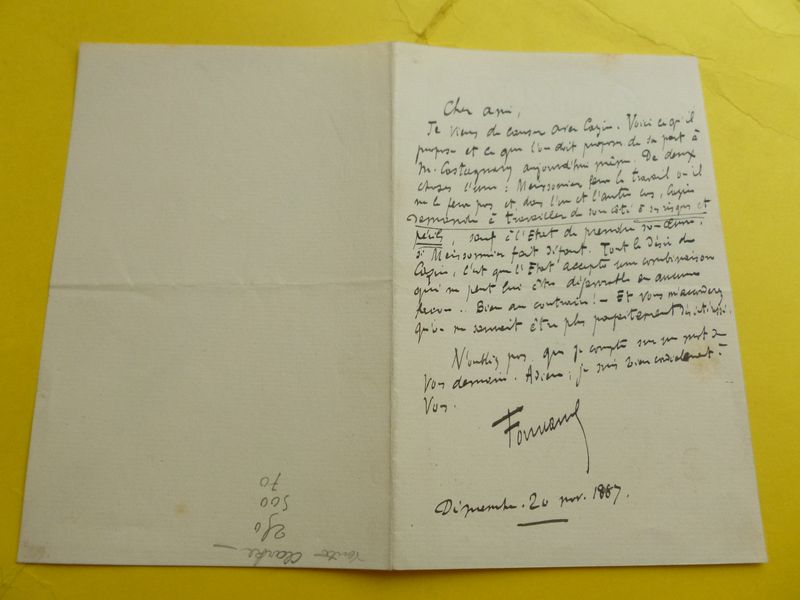 Cher ami,
Je viens de causer avec Cazin. Voici ce qu'il
propose et ce que l'on doit proposer de sa part à
M. Castagnary aujourd'hui même. De deux
choses l'une : Meissonier fera le travail ou il
ne le fera pas et, dans l'un et l'autre cas, Cazin
demande à travailler de son côté à ses risques et
périls, sauf à l'Etat de prendre son œuvre,
si Meissonnier fait défaut. Tout le désir de
Cazin, c'est que l'Etat accepte une combinaison
qui ne peut lui être défavorable en aucune
façon.. Bien au contraire! - Et vous m'accorderez
qu'on ne saurait être plus parfaitement désintéressé.
N'oubliez pas que je compte sur un mot de
vous demain. Adieu; je suis bien cordialement à
vous.
Fourcaud
Dimanche. 20 nov. 1887.
70
500
250